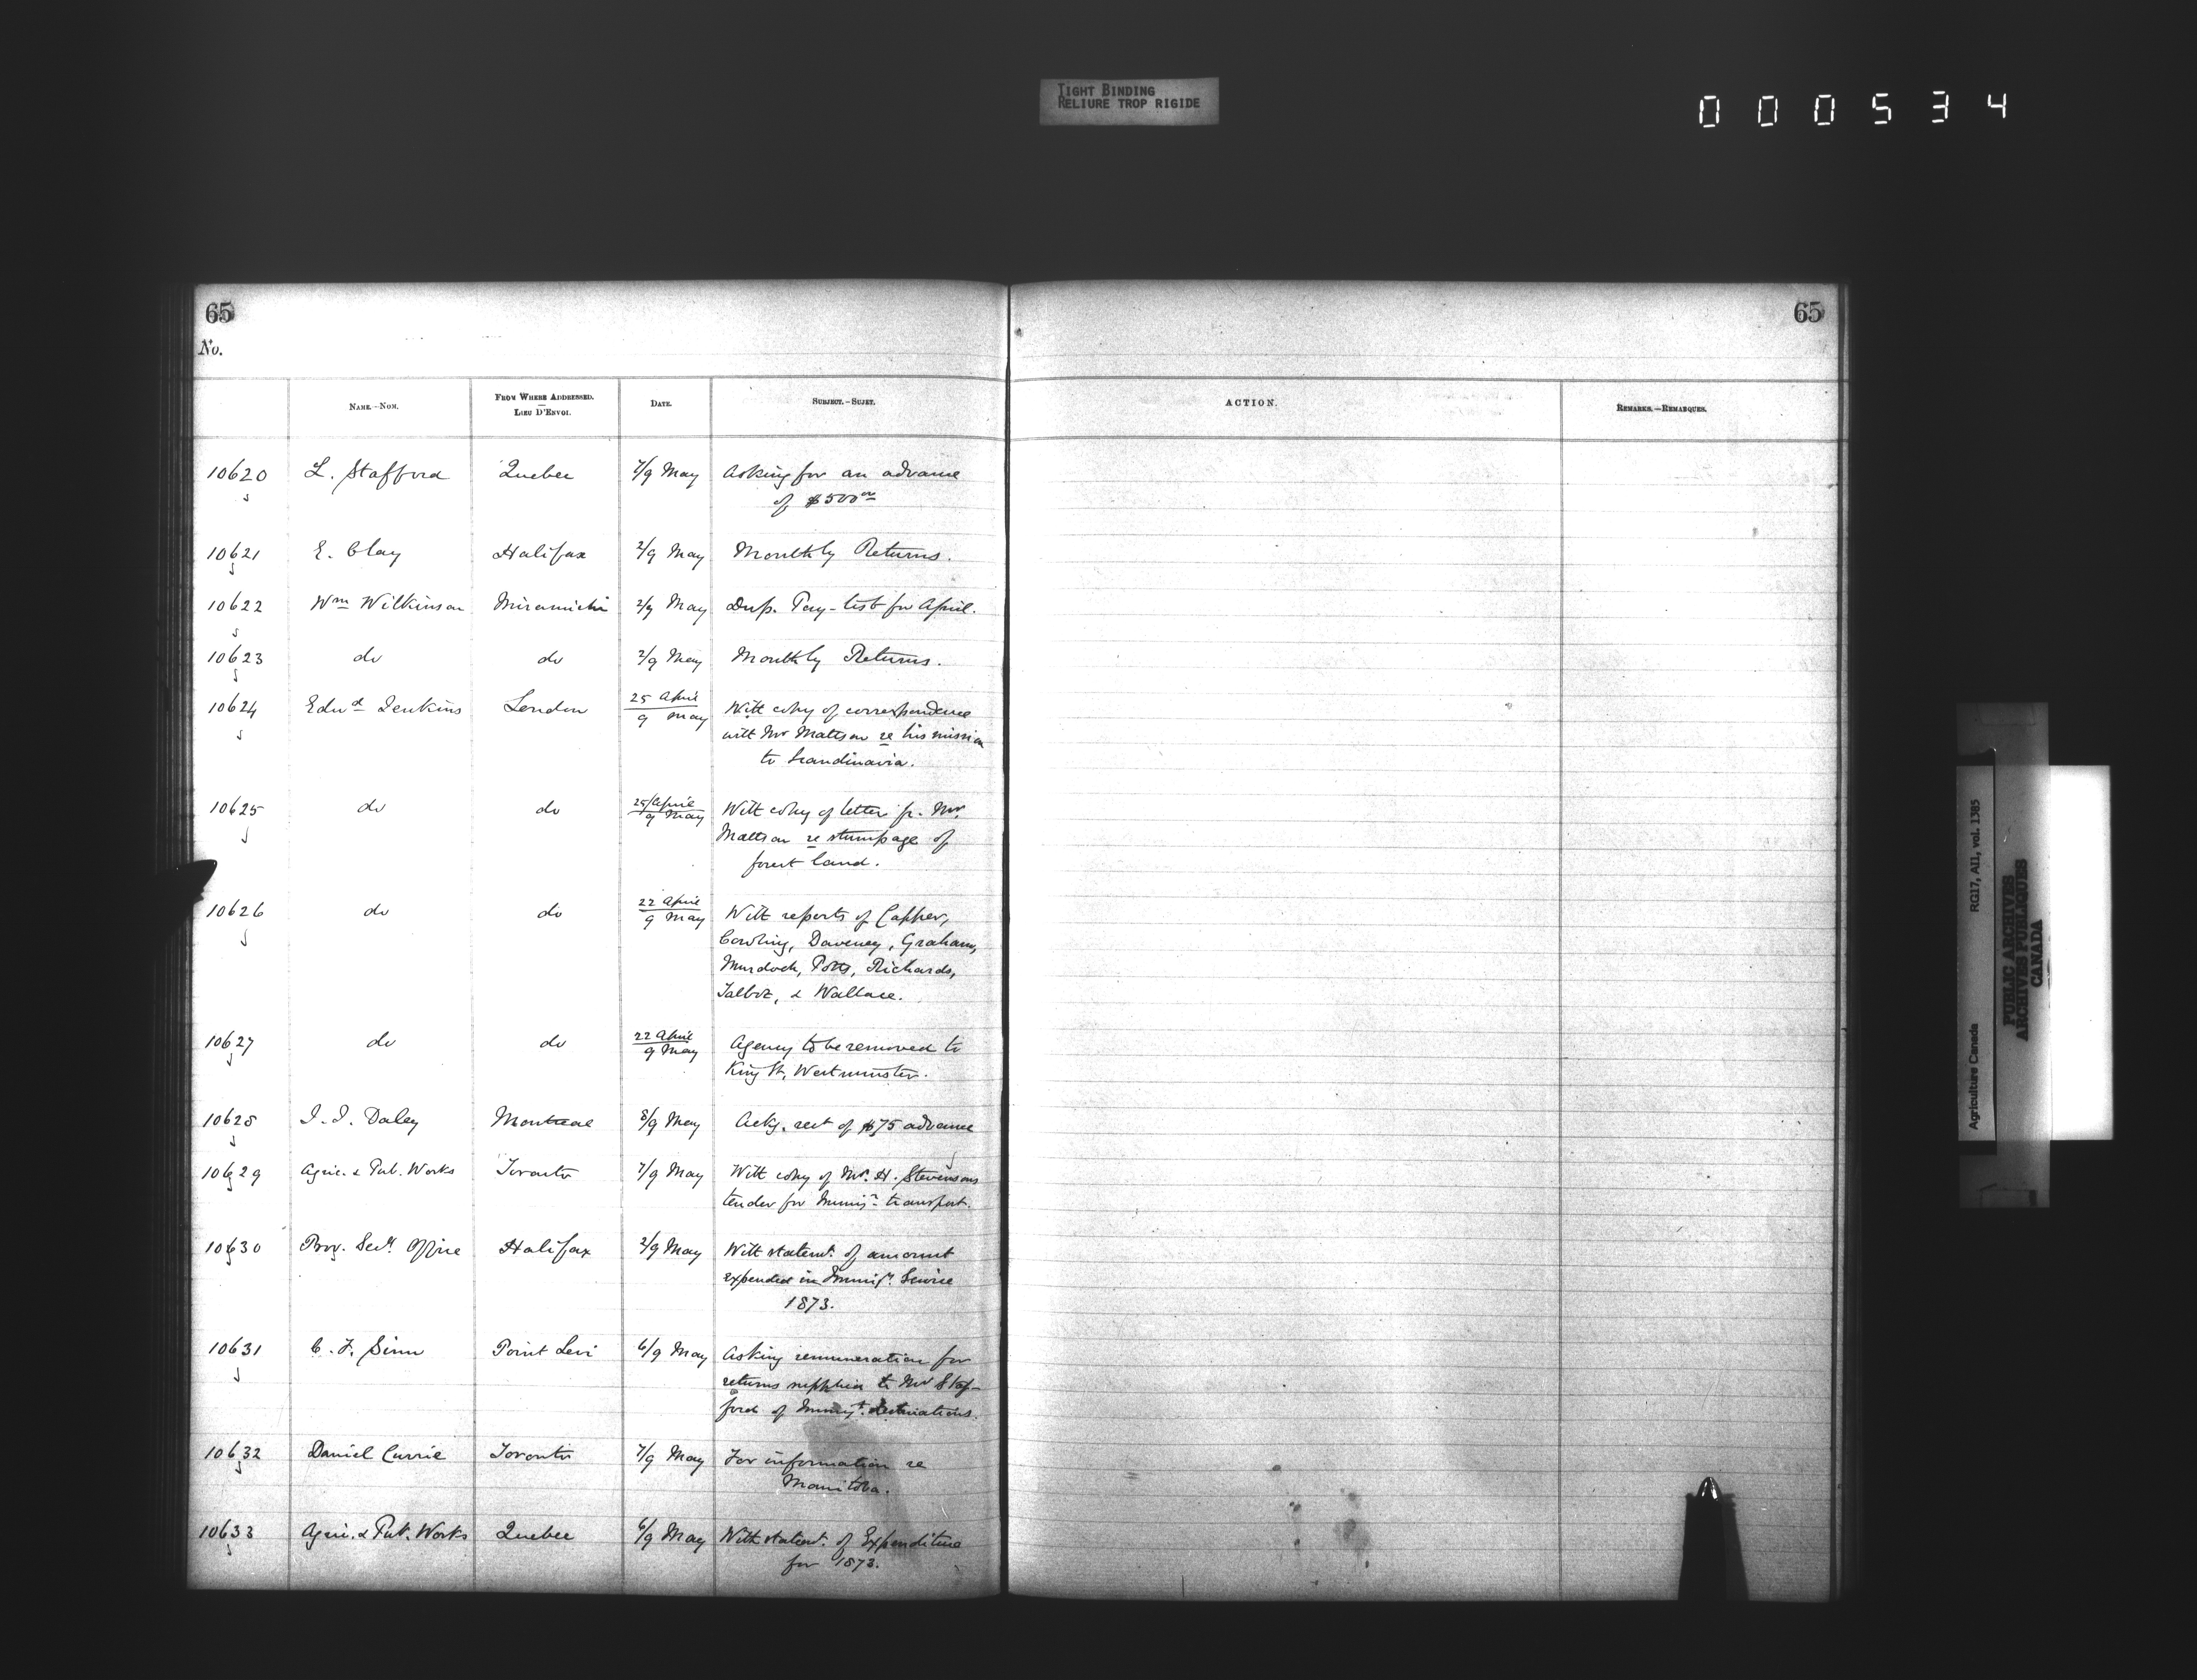 TIGHT BINDING
RELIURE TROP RIGIDE
000534
65
65
No.
NAME.-NOM.
FROM WHERE ADDRESSED.
LIEU D'ENVOI.
DATE.
SUBJECT.-SUJET.
ACTION.
REMARKS.-REMARQUES.
10620 L. Stafford Quebec 7/9 May Asking for an advance
of $500 00
10621 E. Clay Halifax 2/9 May Monthly Returns.
10622 Wm Wilkinson Miramichi 2/9 May Dup. Pay-list for April.
10623 do do 2/9 May Monthly Returns.
10624 Edwd Jenkins London 25 April
9 May With copy of correspondence
with Mr Mattson re his mission
to Scandinavia.
10625 do do 25/April
9 May With copy of letter fr. Mr.
Mattson re stumpage of
forest land.
10626 do do 22 April
9 May With reports of Capper,
Cowling, Daveney, Graham,
Murdoch, Potts, Richards,
Talbot, & Wallace.
10627 do do 22 April
9 May Agency to be removed to
King St, Westminster.
10628 J. J. Daley Montreal 8/9 May Ackg. rect of $75 advance
10629 Agric. & Pub. Works Toronto 7/9 May With copy of Mr. H. Stevensons
tender for Immign transport.
10630 Prov. Secy. Office Halifax 2/9 May With statemt. of amount
expended in Immign. Service
1873.
10631 C. F. Sinn Point Levi 6/9 May Asking remuneration for
returns supplied to Mr Staf-
ford of Immigt. destinations.
10632 Daniel Currie Toronto 7/9 May For information re
Manitoba.
10633 Agric. & Pub. Works Quebec 6/9 May With statemt. of Expenditure
for 1873.
Agriculture Canada RG17, AII, vol. 1385
PUBLIC ARCHIVES
ARCHIVES PUBLIQUES
CANADA